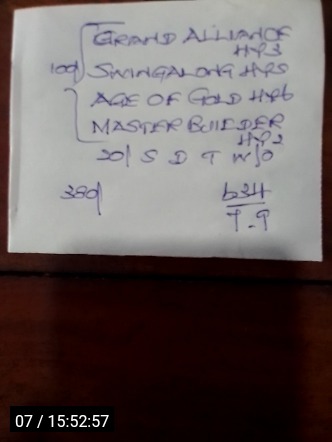 GRAND ALLIANCE
HP3
100/ SWINGALONG HP5
AGE OF GOLD HP6
MASTER BUILDER
HP2
20/ S D T W/O
380/ 634
T.P
07 / 15:52:57